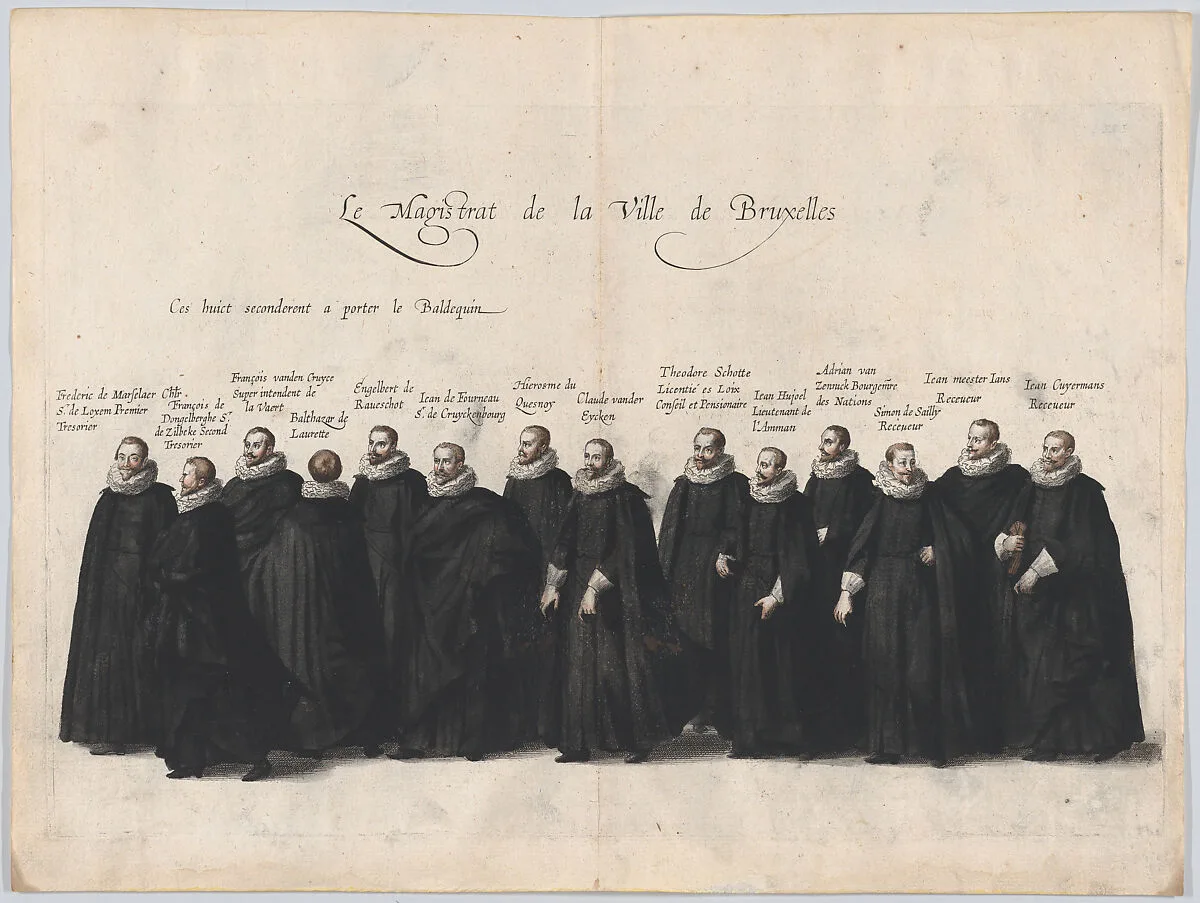 Le Magistrat de la Ville de Bruxelles
Ces huict seconderent a porter le Baldequin
Frederic de Marselaer Chlr.
Sr. de Loxem Premier
Tresorier
François de
Dongelberghe Sr.
de Zilbeke Second
Tresorier
François vanden Cruyce
Super intendent de
la Vaert
Balthazar de
Laurette
Engelbert de
Raueschot
Iean de Fourneau
Sr. de Cruyckenbourg
Hierosme du
Quesnoy
Claude vander
Eycken
Theodore Schotte
Licentié es Loix
Conseil et Pensionaire
Iean Hujoel
Lieutenant de
l'Amman
Adrian van
Zennuck Bourgemre
des Nations
Simon de Sailly
Receueur
Iean meester Ians
Receueur
Iean Cuyermans
Receueur